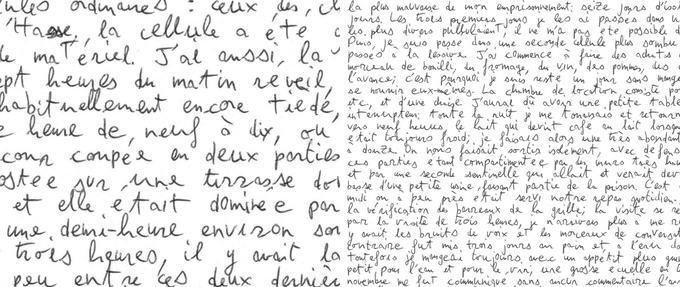 ules ordinaires : ceux des, cl
Hasse, la cellule a été c
de matériel. J'ai aussi, la v
ept heures du matin reveil,
habituellement encore tiède,
e heure de, neuf à dix, ou
cour coupée en deux parties
ostée sur une terrasse do
et elle était dominée par
une demi-heure environ son
trois heures, il y avait la
peu entre ces deux dernièr
la plus mauvaise de mon emprisonnement: seize jours d'isol
jours. Les trois premiers jours je les ai passés dans u
les plus divers pullulaient, il ne m'a pas été possible d
Puno, je suis passé dans une seconde cellule plus sombre
passée à la lessive. J'ai commencé à faire des achats
morceau de bouilli, du fromage, du vin, des pommes, des
l'avance; c'est pourquoi je suis resté un jour sans mange
se nourrir eux-mêmes. La chambre de location consiste
etc, et d'une chaise. J'aurai dû avoir une petite table
interruption; toute la nuit je me tournais et retourn
vers neuf heures, le lait qui devint café au lait lorsqu
était toujours froid; je faisais alors une très abondan
à douze. On nous faisait sortir isolément, avec défense
ces parties étant compartimentée par des murs très hau
et par une seconde sentinelle qui allait et venait dev
basse d'une petite usine, faisant partie de la prison. C'est
midi on a peu près était servi notre repas quotidien.
la vérification des barreaux de la grille; la visite se ré
par la visite de trois heures, je n'arrivais plus à me re
y avait les bruits de voix et les morceaux de conversat
contraire fut mis trois jours au pain et à l'eau da
toutefois je mangeai toujours avec un appétit plus gran
petit, pour l'eau et pour le vin, une grosse écuelle en t
novembre me fut communiqué sans aucun commentaire l'arr